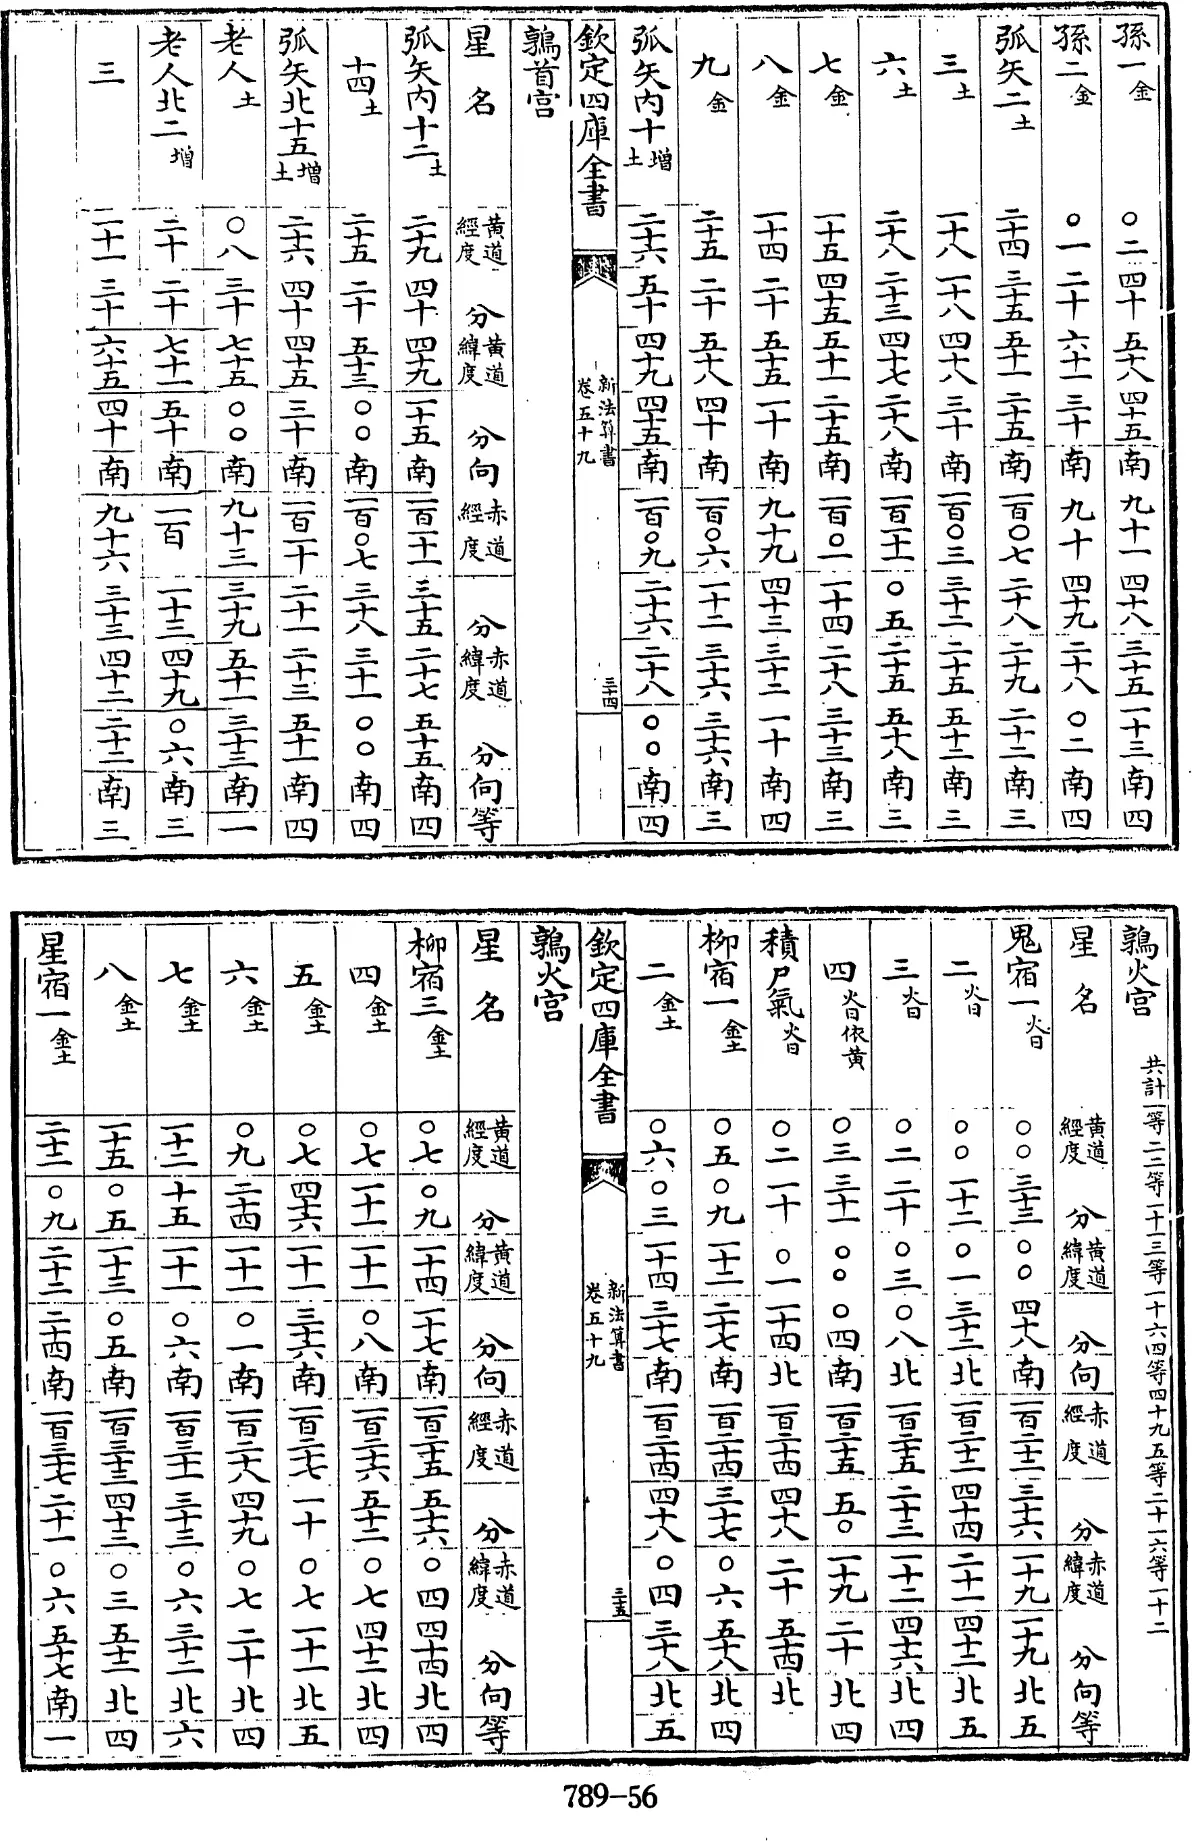 孫一金 〇二 四十 五十八 四十五 南 九十一 四十八 三十五 一十三 南 四
孫二金 〇一 二十 六十一 三十 南 九十 四十九 二十八 〇二 南 四
弧矢二土 二十四 三十五 五十一 二十五 南 一百〇七 二十八 二十九 二十二 南 三
三土 一十八 一十八 四十八 三十 南 一百〇三 三十二 二十五 五十二 南 三
六土 二十八 二十三 四十七 二十八 南 一百一十一 〇五 二十五 五十八 南 三
七金 一十五 四十五 五十一 二十五 南 一百〇一 一十四 二十八 三十三 南 三
八金 一十四 二十 五十五 一十 南 九十九 四十三 三十二 一十 南 四
九金 二十五 二十 五十八 四十 南 一百〇六 一十二 三十六 三十六 南 三
弧矢内十增土 二十六 五十 四十九 四十五 南 一百〇九 二十六 二十八 〇〇 南 四
欽定四庫全書 新法算書 卷五十九 三十四
鶉首宫
星名 黃道經度 分 黃道緯度 分 向 赤道經度 分 赤道緯度 分 向 等
弧矢内十二土 二十九 四十 四十九 一十五 南 一百一十一 三十五 二十七 五十五 南 四
十四土 二十五 二十 五十三 〇〇 南 一百〇七 三十八 三十一 〇〇 南 四
弧矢北十五增土 二十六 四十 四十五 三十 南 一百一十 二十一 二十三 五十一 南 四
老人土 〇八 三十 七十五 〇〇 南 九十三 三十九 五十一 三十三 南 一
老人北二增 二十 二十 七十一 五十 南 一百 一十三 四十九 〇六 南 三
三 一十一 三十 六十五 四十 南 九十六 三十三 四十二 二十二 南 三
鶉火宫 共計一等二二等一十三等一十六四等四十九五等二十一六等一十二
星名 黃道經度 分 黃道緯度 分 向 赤道經度 分 赤道緯度 分 向 等
鬼宿一火日 〇〇 三十三 〇〇 四十八 南 一百二十二 三十六 一十九 一十九 北 五
二火日 〇〇 一十二 〇一 三十二 北 一百二十二 四十四 二十一 四十二 北 五
三火日 〇二 二十 〇三 〇八 北 一百二十五 二十三 二十二 四十六 北 四
四火日依黃 〇三 三十一 〇〇 〇四 南 一百二十五 五〇 一十九 二十 北 四
積尸氣火日 〇二 一十 〇一 一十四 北 一百二十四 四十八 二十 五十四 北
柳宿一金土 〇五 〇九 一十二 二十七 南 一百二十四 三十七 〇六 五十八 北 四
二金土 〇六 〇三 一十四 三十七 南 一百二十四 四十八 〇四 三十八 北 五
欽定四庫全書 新法算書 卷五十九 三十五
鶉火宫
星名 黃道經度 分 黃道緯度 分 向 赤道經度 分 赤道緯度 分 向 等
柳宿三金土 〇七 〇九 一十四 一十七 南 一百二十五 五十六 〇四 四十四 北 四
四金土 〇七 一十一 一十一 〇八 南 一百二十六 五十二 〇七 四十二 北 四
五金土 〇七 四十六 一十一 三十六 南 一百二十七 一十 〇七 一十一 北 五
六金土 〇九 二十四 一十一 〇一 南 一百二十八 四十九 〇七 二十 北 四
七金土 一十二 十五 一十一 〇六 南 一百三十一 三十三 〇六 三十二 北 六
八金土 一十五 〇五 一十三 〇五 南 一百三十三 四十三 〇三 五十二 北 四
星宿一金土 二十二 〇九 二十二 二十四 南 一百三十七 二十一 〇六 五十七 南 一
789-56